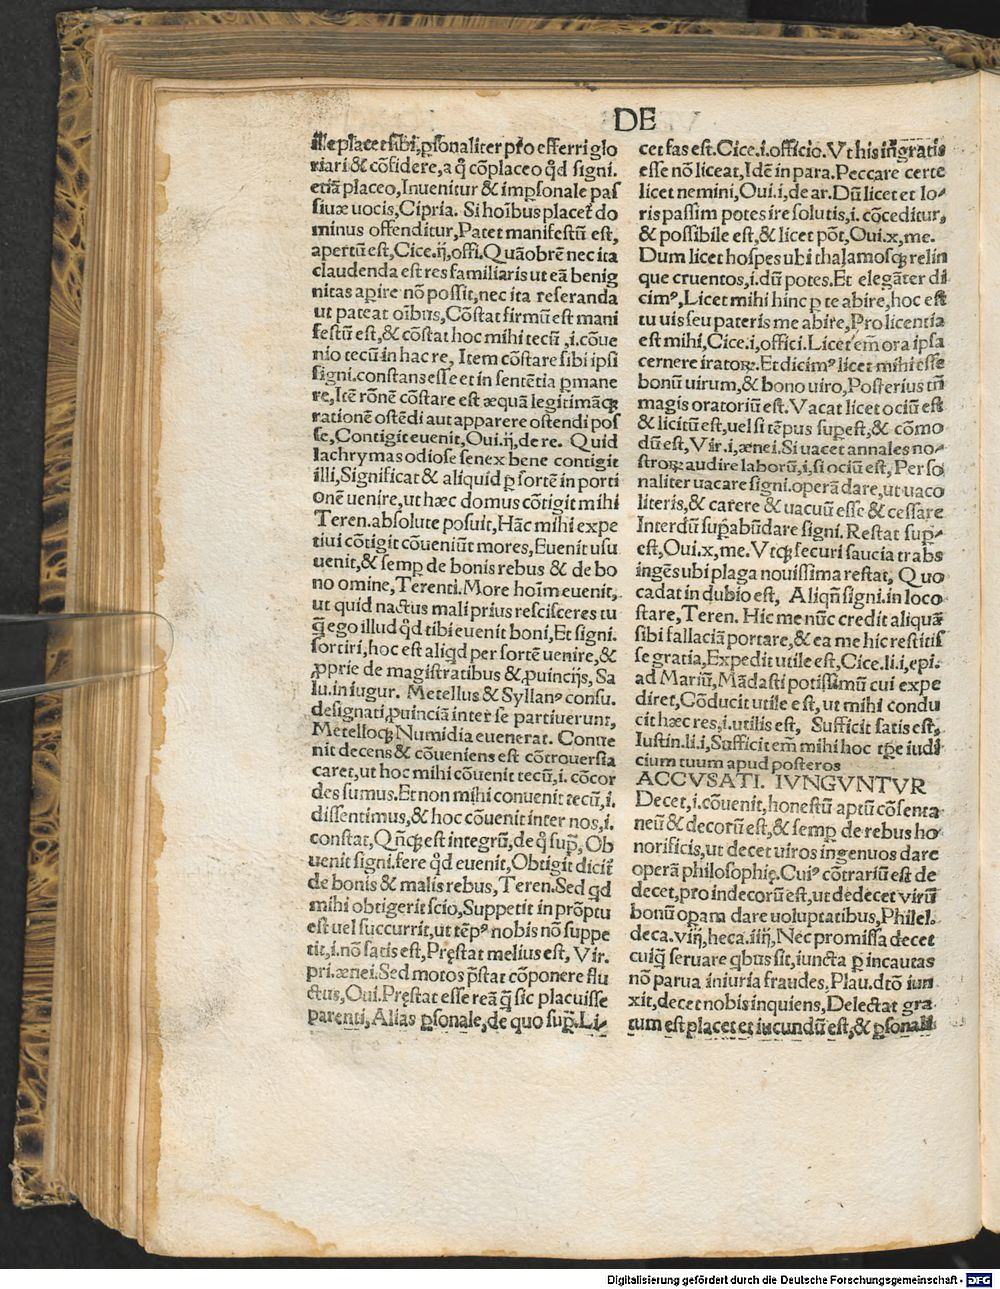 DE
ille placet sibi, ꝑsonaliter pro efferri glo
riari & cõfidere, a q̃ cõplaceo qd̃ signi.
etiã placeo, Inuenitur & impsonale pas
siuæ uocis, Cipria. Si hoĩbus placet̃ do
minus offenditur, Patet manifestũ est,
apertũ est, Cice.ij, offi. Quãobrẽ nec ita
claudenda est res familiaris ut eã benig
nitas apire nõ possit, nec ita reseranda
ut pateat oĩbus, Cõstat firmũ est mani
festũ est, & cõstat hoc mihi tecũ, .i. cõue
nio tecũ in hac re, Item cõstare sibi ipsi
signi. constans esse et in sentẽtia ꝑmane
re, Itẽ rõnẽ cõstare est æquã legitimãq;
rationẽ ostẽdi aut apparere ostendi pos
se, Contigit euenit, Oui.ij, de re. Quid
lachrymas odiose senex bene contigit
illi, Significat & aliquid ꝑ sortẽ in porti
onẽ uenire, ut hæc domus cõtigit mihi
Teren. absolute posuit, Hãc mihi expe
tiui cõtigit cõueniũt mores, Euenit usu
uenit, & semp de bonis rebus & de bo
no omine, Terenti. More hoĩm euenit,
ut quid nactus mali prius rescisceres tu
q̃ ego illud qd̃ tibi euenit boni, Et signi.
sortiri, hoc est aliqd per sortẽ uenire, &
ꝓprie de magistratibus & ꝓuincijs, Sa
lu. in iugur. Metellus & Syllanꝰ consu.
designati, ꝓuinciã inter se partiuerunt,
Metelloq; Numidia euenerat. Conue
nit decens & cõueniens est cõtrouersia
caret, ut hoc mihi cõuenit tecũ, i. cõcor
des sumus. Et non mihi conuenit tecũ, i.
dissentimus, & hoc cõuenit inter nos, i.
constat, Qñq; est integrũ, de q̃ sup̃, Ob
uenit signi. fere qd̃ euenit, Obtigit dicit̃
de bonis & malis rebus, Teren. Sed qd
mihi obtigerit scio, Suppetit in prõptu
est uel succurrit, ut tẽpꝰ nobis nõ suppe
tit, i. nõ satis est, Pręstat melius est, Vir.
pri. ænei. Sed motos p̃stat cõponere flu
ctus, Oui. Pręstat esse reã q̃ sic placuisse
parenti, Alias ꝑsonale, de quo sup̃. Li-
cet fas est. Cice.i. officio. Vt his ingratis
esse nõ liceat, Idẽ in para. Peccare certe
licet nemini, Oui.i, de ar. Dũ licet et lo-
ris passim potes ire solutis, i. cõceditur,
& possibile est, & licet põt, Oui.x, me.
Dum licet hospes ubi thalamosq; relin
que cruentos, i. dũ potes. Et elegãter di
cimꝰ, Licet mihi hinc ꝑ te abire, hoc est
tu uis seu pateris me abire, Pro licentia
est mihi, Cice.i, offici. Licet em̃ ora ipsa
cernere iratoꝝ. Et dicimꝰ licet mihi esse
bonũ uirum, & bono uiro, Posterius tñ
magis oratoriũ est. Vacat licet ociũ est
& licitũ est, uel si tẽpus sup̃est, & cõmo
dũ est, Vir.i, ænei. Si uacet annales no-
stroꝝ audire laborũ, i, si ociũ est, Perso
naliter uacare signi. operã dare, ut uaco
literis, & carere & uacuũ esse & cessare
Interdũ sup̃abũdare signi. Restat sup̃-
est, Oui.x, me. Vtq; securi saucia trabs
ingẽs ubi plaga nouissima restat, Quo
cadat in dubio est, Aliqñ signi. in loco
stare, Teren. Hic me nũc credit aliquã
sibi fallaciã portare, & ea me hic restitis
se gratia, Expedit utile est, Cice.li.i, epi.
ad Mariũ, Mãdasti potissimũ cui expe
diret, Cõducit utile est, ut mihi condu
cit hæc res, .i. utilis est, Sufficit satis est,
Iustin.li.i, Sufficit em̃ mihi hoc tp̃e iudi
cium tuum apud posteros
ACCVSATI. IVNGVNTVR
Decet, i. cõuenit, honestũ aptũ cõsenta
neũ & decorũ est, & semp de rebus ho
norificis, ut decet uiros ingenuos dare
operã philosophię. Cuiꝰ cõtrariũ est de
decet, pro indecorũ est, ut dedecet virũ
bonũ opam dare uoluptatibus, Philel.
deca.viij, heca.iiij, Nec promissa decet
cuiq̃ seruare qbus sit, iuncta ꝑ incautas
nõ parua iniuria fraudes, Plau. dtõ iun
xit, decet nobis inquiens, Delectat gra
tum est placet et iucundũ est, & ꝑsonali
Digitalisierung gefördert durch die Deutsche Forschungsgemeinschaft - DFG